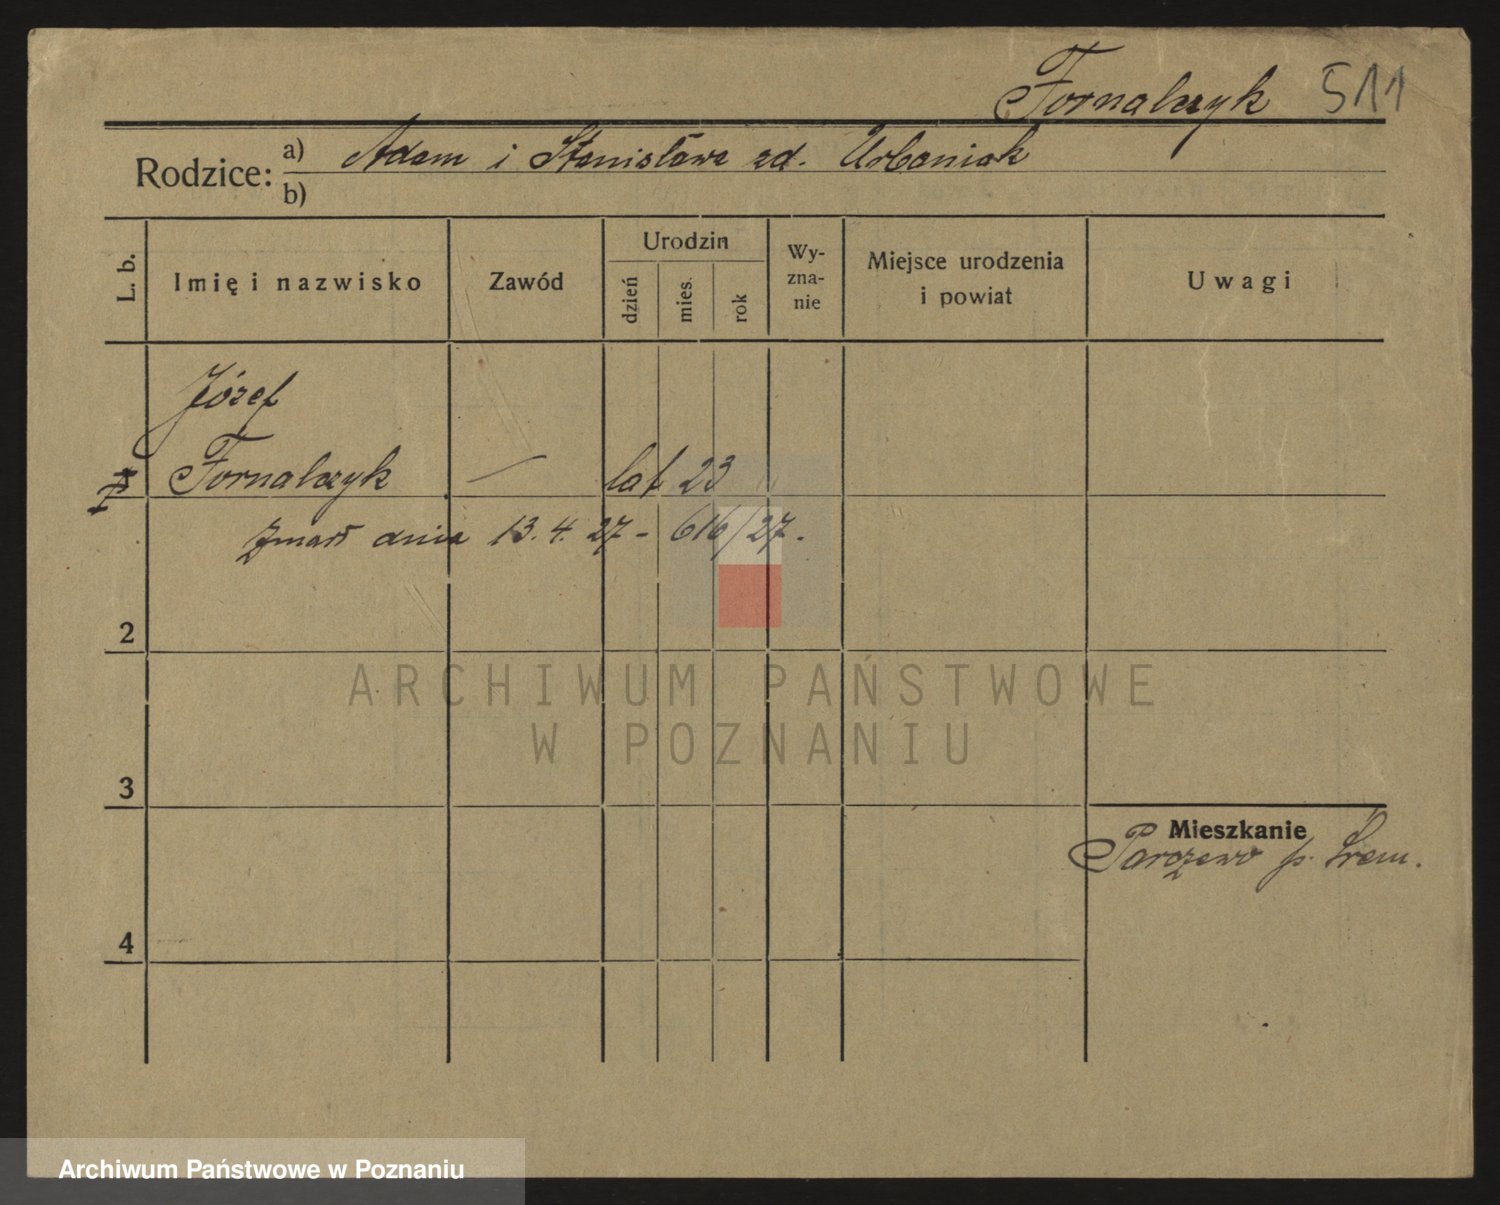 Fornalczyk 511
Rodzice: a) Adam i Stanisława zd. Urbaniak
b)
L. b.
Imię i nazwisko
Zawód
Urodzin
dzień
mies.
rok
Wy-
zna-
nie
Miejsce urodzenia
i powiat
Uwagi
Józef
Fornalczyk — lat 23
Zmarł dnia 13.4.27 - 616/27.
2
ARCHIWUM PAŃSTWOWE
W POZNANIU
3
Mieszkanie
4
Archiwum Państwowe w Poznaniu